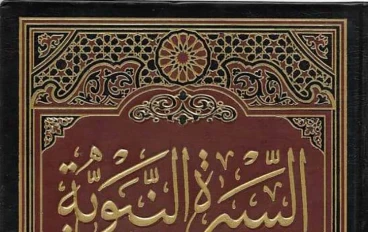 السيرة النبوية